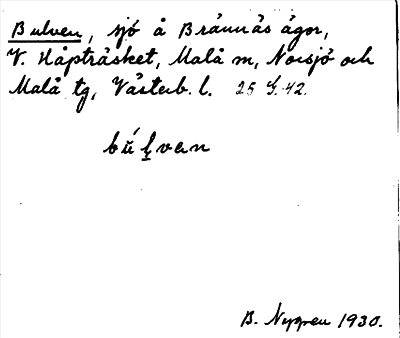 Bulven, sjö å Brännäs ägor,
V. Håpträsket, Malå m, Norsjö och
Malå tg, Västerb. l. 25 S. 42.
búlvan
B. Nygren 1930.